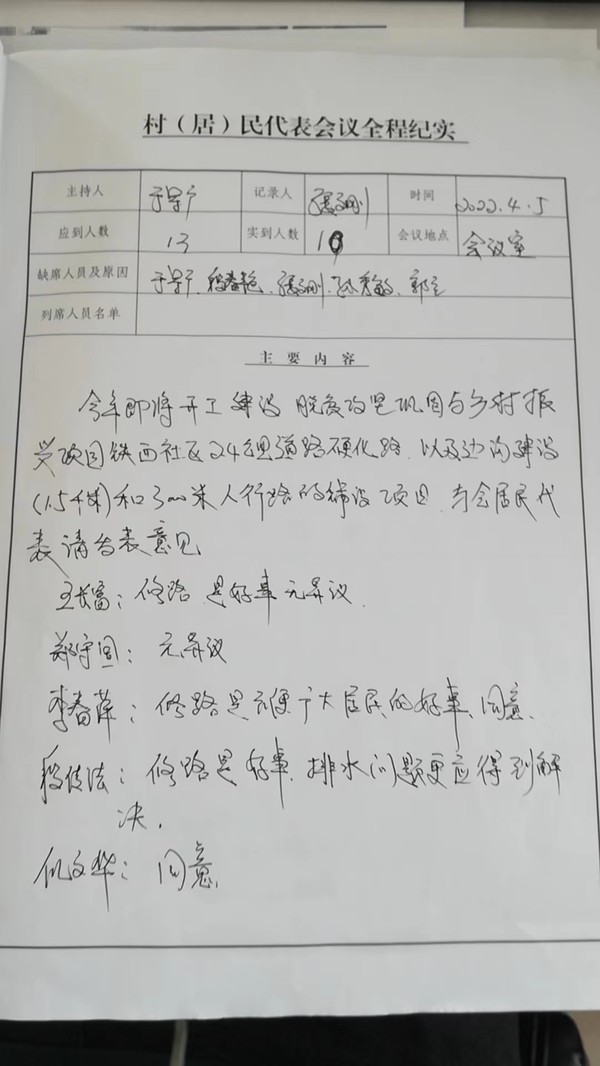 村（居）民代表会议全程纪实
主持人 记录人 时间 2022.4.5
应到人数 13 实到人数 10 会议地点 会议室
缺席人员及原因
列席人员名单
主要内容
今年即将开工建设 脱贫攻坚巩固与乡村振
兴项目铁西社区2.4公里道路硬化路 以及边沟建设
(1.5千米)和300米人行路的铺设项目 与会居民代
表请发表意见
王长富：修路是好事无异议.
郑守国：无异议
李春萍：修路是方便广大居民的好事、同意.
段传法：修路是好事.排水问题更应得到解
决.
文华：同意.